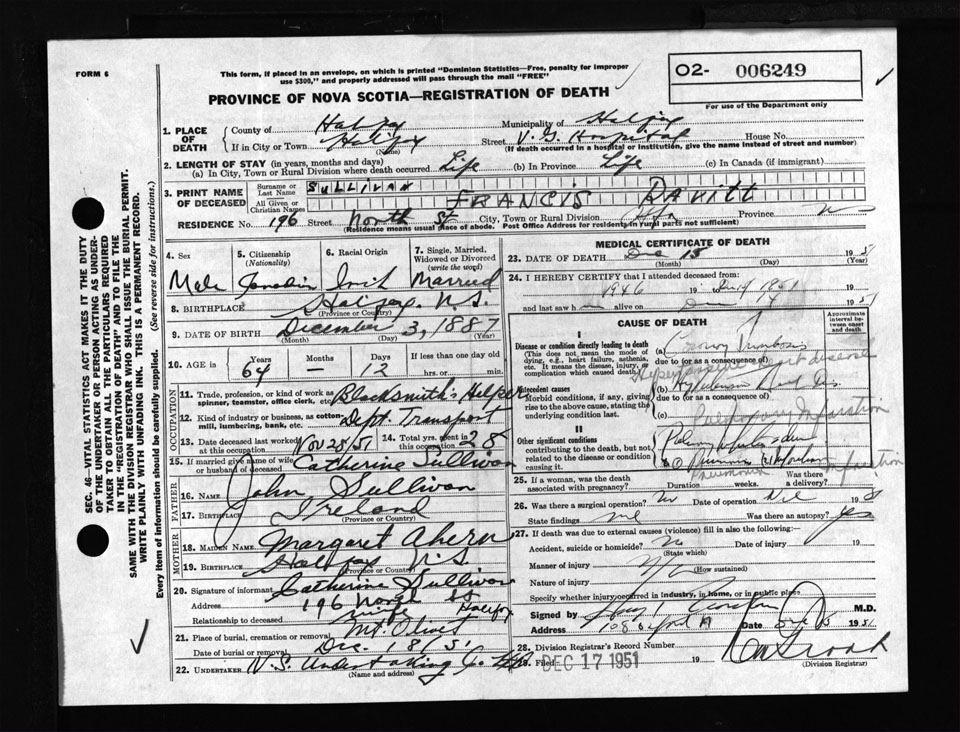 FORM 6
This form, if placed in an envelope, on which is printed "Dominion Statistics—Free, penalty for improper
use $300," and properly addressed will pass through the mail "FREE"
PROVINCE OF NOVA SCOTIA—REGISTRATION OF DEATH
O2- 006249
For use of the Department only
1. PLACE OF DEATH
County of Halifax Municipality of Halifax
If in City or Town Halifax Street V. G. Hospital House No.
(If death occurred in a hospital or institution, give the name instead of street and number)
2. LENGTH OF STAY (in years, months and days)
(a) In City, Town or Rural Division where death occurred Life (b) In Province Life (c) In Canada (if immigrant)
3. PRINT NAME OF DECEASED
Surname or Last Name SULLIVAN
All Given or Christian Names FRANCIS DAVITT
RESIDENCE No. 196 Street North St City, Town or Rural Division Hfx Province NS
(Residence means usual place of abode. Post Office Address for residents in rural parts not sufficient)
4. Sex Male
5. Citizenship (Nationality) Canadian
6. Racial Origin Irish
7. Single, Married, Widowed or Divorced (write the word) Married
8. BIRTHPLACE Halifax N.S.
(Province or Country)
9. DATE OF BIRTH December 3, 1887
(Month) (Day) (Year)
10. AGE in Years 64 Months — Days 12 If less than one day old hrs. or min.
OCCUPATION
11. Trade, profession, or kind of work as spinner, teamster, office clerk, etc. Blacksmith's Helper
12. Kind of industry or business, as cotton mill, lumbering, bank, etc. Dept. Transport
13. Date deceased last worked at this occupation Nov 28/51
14. Total yrs. spent in this occupation 28
15. If married give name of wife or husband of deceased Catherine Sullivan
FATHER
16. NAME John Sullivan
17. BIRTHPLACE Ireland
(Province or Country)
MOTHER
18. MAIDEN NAME Margaret Ahern
19. BIRTHPLACE Halifax N.S.
(Province or Country)
20. Signature of informant Catherine Sullivan
Address 196 North St Halifax
Relationship to deceased
21. Place of burial, cremation or removal Mt. Olivet
Date of burial or removal Dec. 18/51
22. UNDERTAKER N.S. Undertaking Co. Ltd
(Name and address)
MEDICAL CERTIFICATE OF DEATH
23. DATE OF DEATH Dec 15 1951
(Month) (Day) (Year)
24. I HEREBY CERTIFY that I attended deceased from:
1946 19 1951
and last saw h alive on 1951
CAUSE OF DEATH
Approximate interval between onset and death
I
Disease or condition directly leading to death
(This does not mean the mode of dying, e.g., heart failure, asthenia, etc. It means the disease, injury, or complication which caused death.)
(a) Coronary Thrombosis
due to (or as a consequence of)
Hypertensive heart disease
Antecedent causes
Morbid conditions, if any, giving rise to the above cause, stating the underlying condition last.
(b) Hypertensive
due to (or as a consequence of)
(c)
Pulmonary Infarction
II
Other significant conditions
contributing to the death, but not related to the disease or condition causing it.
pneumonia Infarction
25. If a woman, was the death associated with pregnancy? Duration weeks. a delivery?
26. Was there a surgical operation? no Date of operation 19
State findings Was there an autopsy? yes
27. If death was due to external causes (violence) fill in also the following:—
Accident, suicide or homicide? No Date of injury 19
(State which)
Manner of injury
(How sustained)
Nature of injury
Specify whether injury occurred in industry, in home, or in public place
Signed by M.D.
Address Date Dec 15 1951
28. Division Registrar's Record Number
29. Filed DEC 17 1951 19
(Division Registrar)
SEC. 46—VITAL STATISTICS ACT MAKES IT THE DUTY
OF THE UNDERTAKER OR PERSON ACTING AS UNDER-
TAKER TO OBTAIN ALL THE PARTICULARS REQUIRED
IN THE "REGISTRATION OF DEATH" AND TO FILE THE
SAME WITH THE DIVISION REGISTRAR WHO SHALL ISSUE THE BURIAL PERMIT.
WRITE PLAINLY WITH UNFADING INK. THIS IS A PERMANENT RECORD.
Every item of information should be carefully supplied. (See reverse side for instructions.)